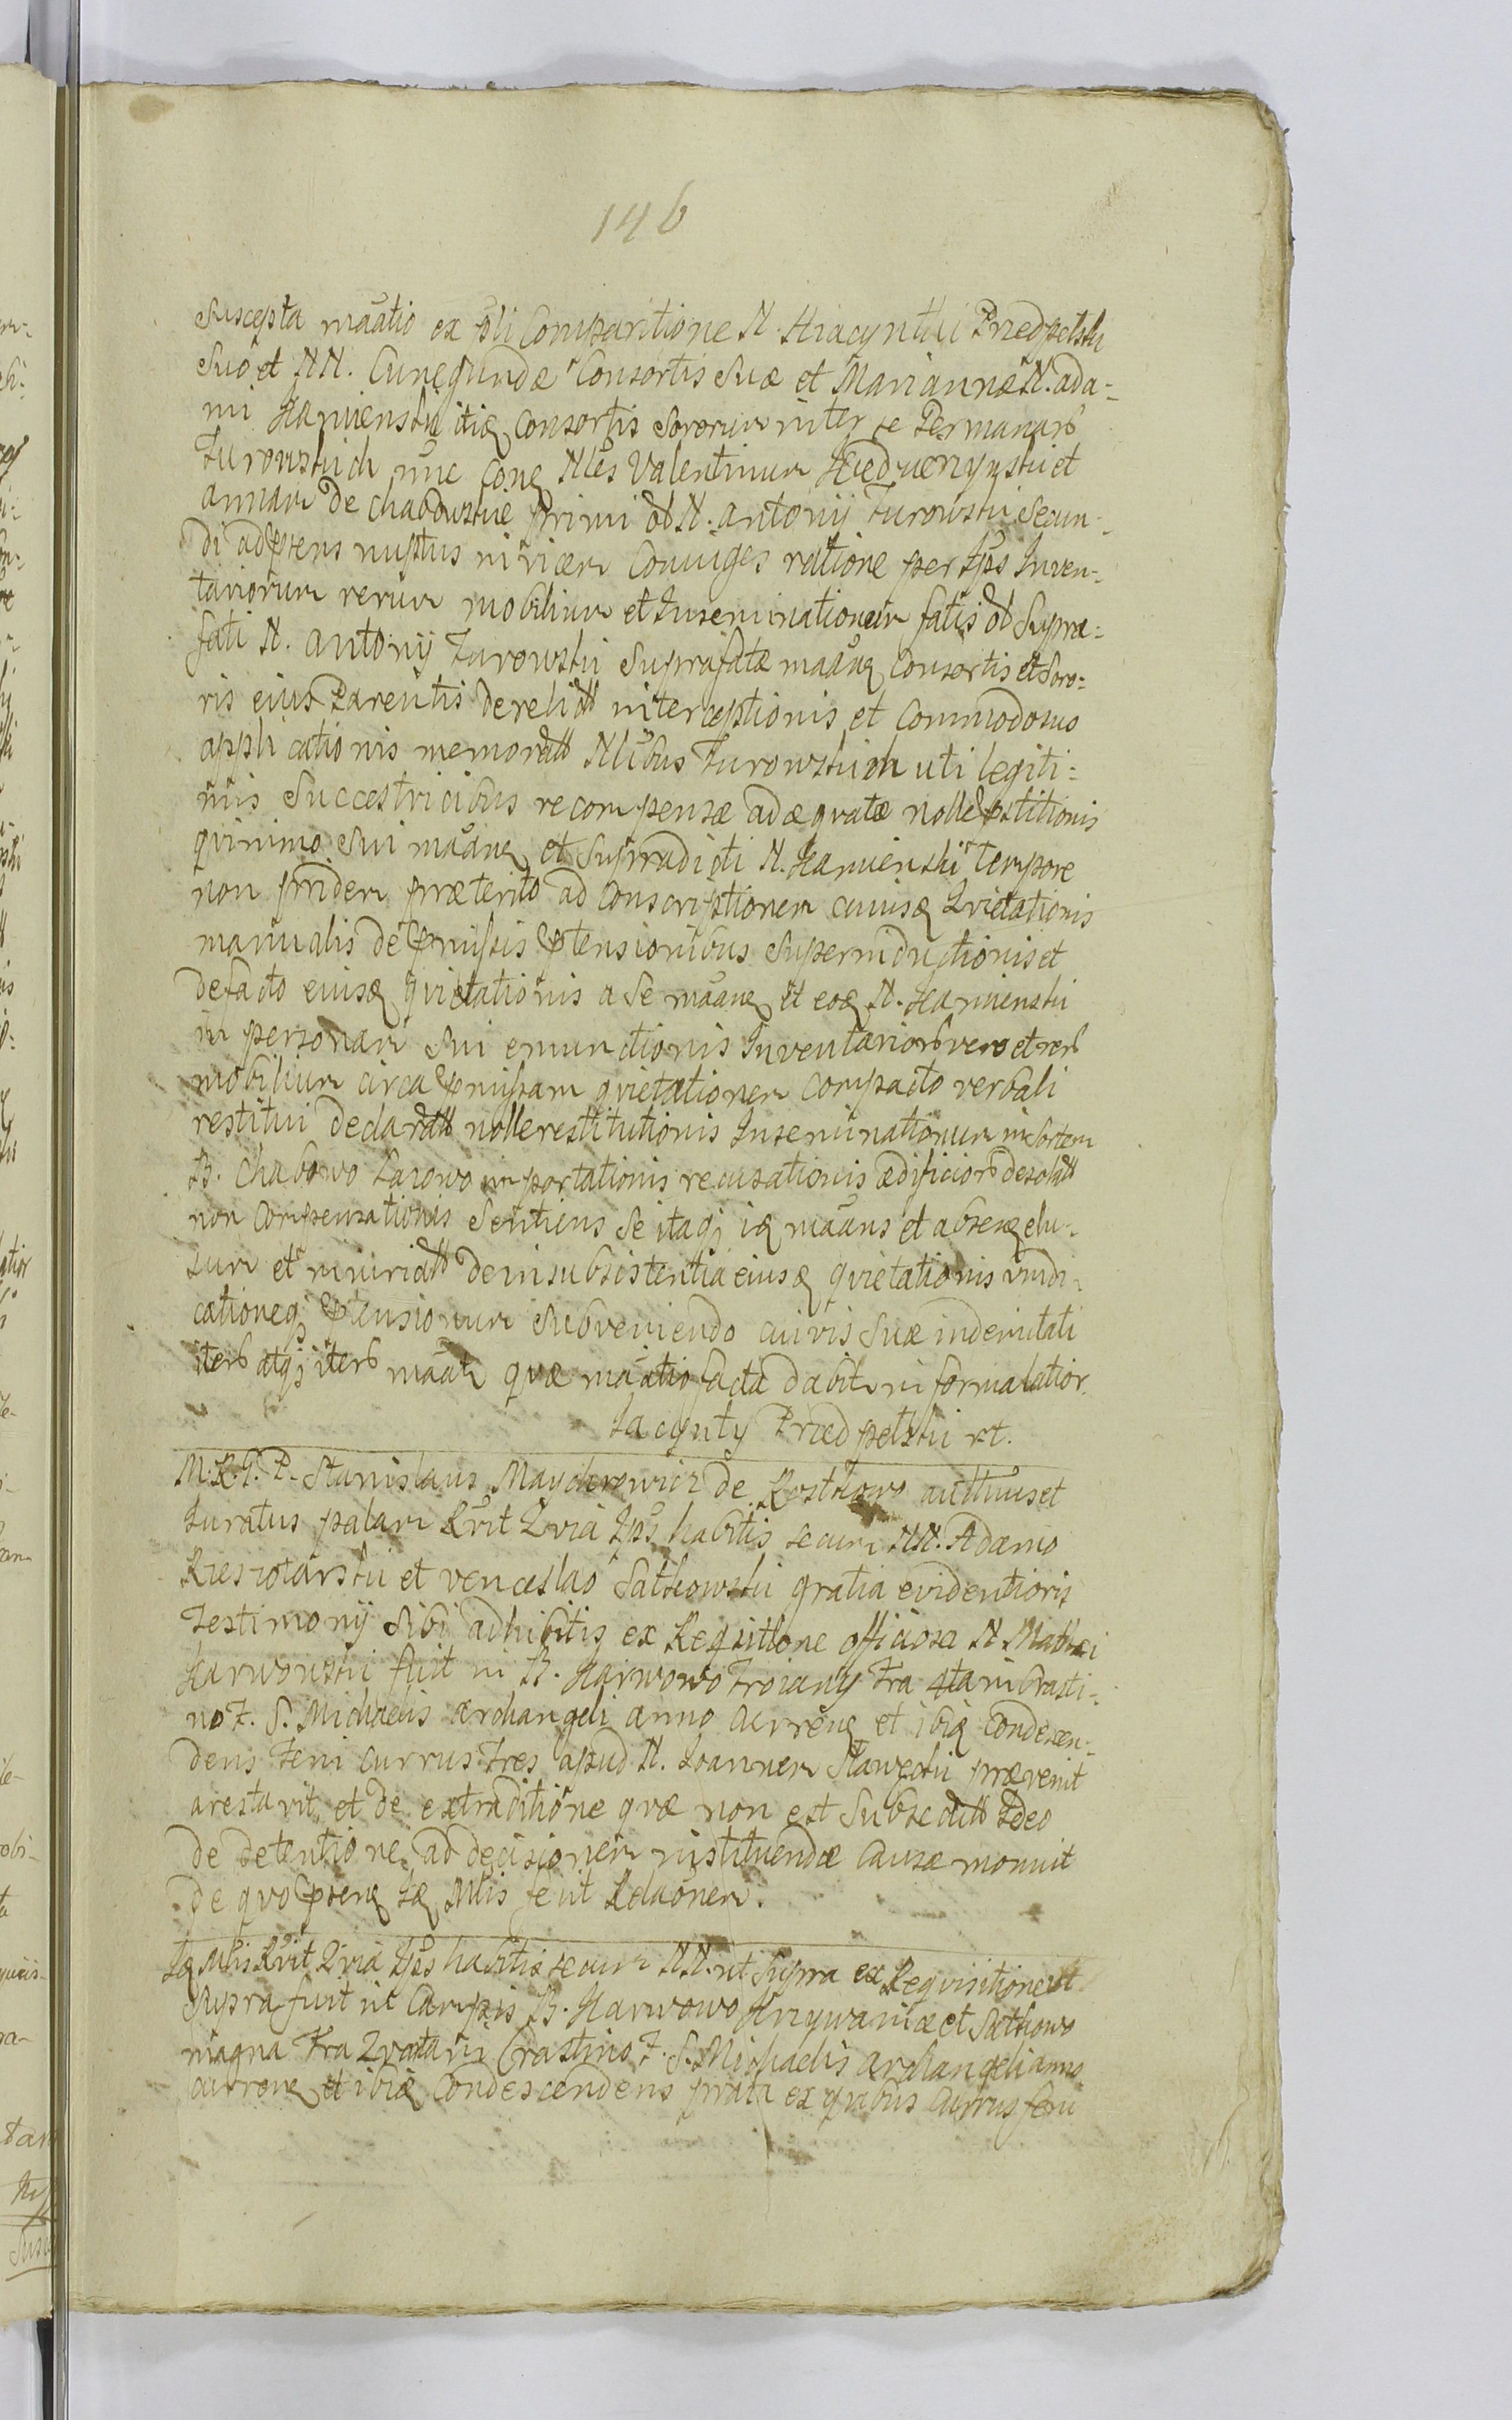 146
Suscepta mãatio ex pſli Comparitione N. Hiacynthi Przedpelski
Suo et NN. Cunegundæ Consortis Suæ et Mariannæ N. ada-
mi Kamienski itiq Consortis Sororum inter se Germanarb
Turowskich nũc Conq Nles Valentinum Niedwenynski et
annam De Chabowskie primi ol N. antonij Turowski Secun-
di adprens nuptus invicem Coniuges ratione per Ips Inven-
tariorum rerum mobilium et Inseminationem fatis ol Supra-
fati N. Antonij Turowski Suprafatæ mãanq Consortis et Soro-
ris eius Parentis derelictt interceptionis et Commodosus
applicationis memoratt Nlibus Turowskich uti legiti-
mis Succestricibus recompensæ adæqvatæ nolle pstitionis
qvinimo Sui mãanq et Supradicti N. Kamienski Tempore
non pridem præterito ad Conscriptionem cuiusq Qvietationis
manualis de pmissis ptensionibus Superinductionis et
defacto eiusq qvietationis a Se mãanq et eoq N. Kamienski
in personam Sui emunctionis Inventariorb vero et rerb
mobilium circa pmissam qvietationem Compacto verbali
restitui declaratt nolle restitutionis Inseminationum in Sortem
B. Chabowo Łazowo importationis recusationis ædificiorb desolatt
non Compensationis Sentiens Se itaqj iq mãans et absenq elu-
sum et iniuriatt de insubsistentia eiusq qvietationis vindi-
cationeqj ptensionum Subveniendo cuivis Suæ indemnitati
iterb atqj iterb mãatr qvæ mãatio facta dabitr in forma latior.
Jacynty Przedpelski rt.
M. R. G. P. Stanislaus Maycherowicz de Kostkowo autthus et
Juratus palam Rvit Qvia Ips habitis secum NN. Adamo
et venceslao Satkowski gratia evidentioris
Testimonij Sibi adhibitis ex Reqsitione officiosa N Mathæi
Karwowski fuit in B. Karwowo Troiany Fra 4ta in Crasti-
no F. S. Michaelis archangeli anno Currenq et ibiq Condescen-
dens Feni currus tres apud N. Ioannem prævenit
arestavit et de extraditione qvæ non est Subsecutt Ideo
de detentione ad decisionem instituendæ Causæ monuit
de qvo psenq Iq Mlis fecit Relaõnem.
Iq Mlis Rvit Qvia Ips habitis secum NN. ut Supra ex Requisitione ut
Supra fuit in Campis B. Karwowo et Satkowo
magna Fra Qvarta in Crastino F. S. Michaelis archangeli anno
currenq et ibiq Condescendens prata ex qvibus Currus feni